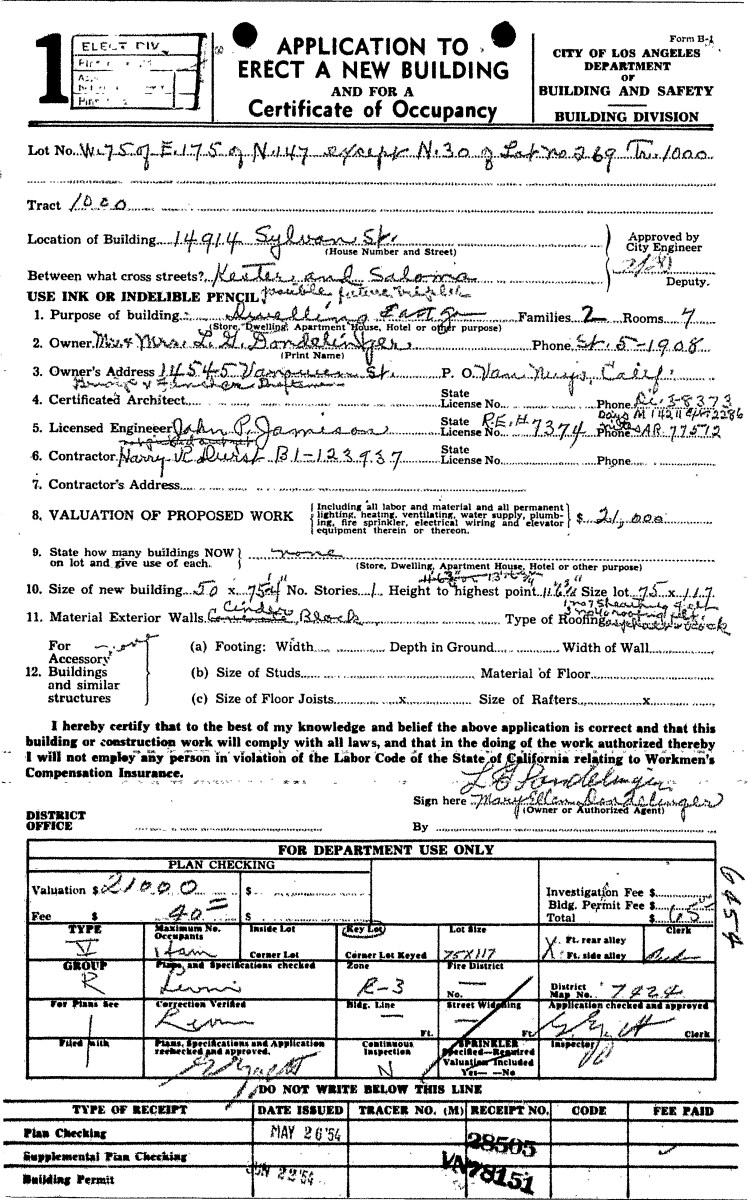 1
ELECT DIV.
APPLICATION TO
ERECT A NEW BUILDING
AND FOR A
Certificate of Occupancy
Form B-1
CITY OF LOS ANGELES
DEPARTMENT
OF
BUILDING AND SAFETY
BUILDING DIVISION
Lot No. W. 75 of E. 175 of N. 147 except N. 30 of Lot no 269 Tr. 1000
Tract 1000
Location of Building 14914 Sylvan St.
(House Number and Street)
Approved by
City Engineer
Between what cross streets? Kester and Saloma
Deputy.
USE INK OR INDELIBLE PENCIL possible future
1. Purpose of building Dwelling Families 2 Rooms 7
(Store, Dwelling, Apartment House, Hotel or other purpose)
2. Owner Mr. & Mrs. L. G. Dondelinger Phone St. 5-1908
(Print Name)
3. Owner's Address 14545 Vanowen St. P. O. Van Nuys, Calif.
4. Certificated Architect State License No. Phone
5. Licensed Engineer John P. Jamison State License No. R.E.H. 7374 Phone AR. 77572
6. Contractor Harry R Durst B1-123937 State License No. Phone
7. Contractor's Address
8. VALUATION OF PROPOSED WORK {Including all labor and material and all permanent lighting, heating, ventilating, water supply, plumbing, fire sprinkler, electrical wiring and elevator equipment therein or thereon.} $ 21,000
9. State how many buildings NOW on lot and give use of each. none
(Store, Dwelling, Apartment House, Hotel or other purpose)
10. Size of new building 50 x 75-4" No. Stories 1 Height to highest point Size lot 75 x 117
11. Material Exterior Walls Cinder Block Type of Roofing
12. For Accessory Buildings and similar structures
(a) Footing: Width Depth in Ground Width of Wall
(b) Size of Studs Material of Floor
(c) Size of Floor Joists x Size of Rafters x
I hereby certify that to the best of my knowledge and belief the above application is correct and that this
building or construction work will comply with all laws, and that in the doing of the work authorized thereby
I will not employ any person in violation of the Labor Code of the State of California relating to Workmen's
Compensation Insurance.
Sign here Mary Ellen Dondelinger
(Owner or Authorized Agent)
DISTRICT
OFFICE
By
FOR DEPARTMENT USE ONLY
PLAN CHECKING
Valuation $ 21000 $
Fee $ 40 $
Investigation Fee $
Bldg. Permit Fee $
Total $ 65
6454
TYPE V
Maximum No. Occupants
Inside Lot
Corner Lot
Key Lot
Corner Lot Keyed
Lot Size 75X117
X Ft. rear alley
X Ft. side alley
Clerk
GROUP R
Plans, and Specifications checked
Zone R-3
Fire District
No. —
District Map No. 7424
For Plans See
Correction Verified
Bldg. Line — Ft.
Street Widening — Ft.
Application checked and approved
Clerk
Filed with
Plans, Specifications and Application rechecked and approved.
Continuous Inspection N
SPRINKLER
Specified—Required
Valuation Included
Yes— —No
Inspector
DO NOT WRITE BELOW THIS LINE
TYPE OF RECEIPT DATE ISSUED TRACER NO. (M) RECEIPT NO. CODE FEE PAID
Plan Checking MAY 26 '54 28505
Supplemental Plan Checking
Building Permit JUN 22 '54 VN78151